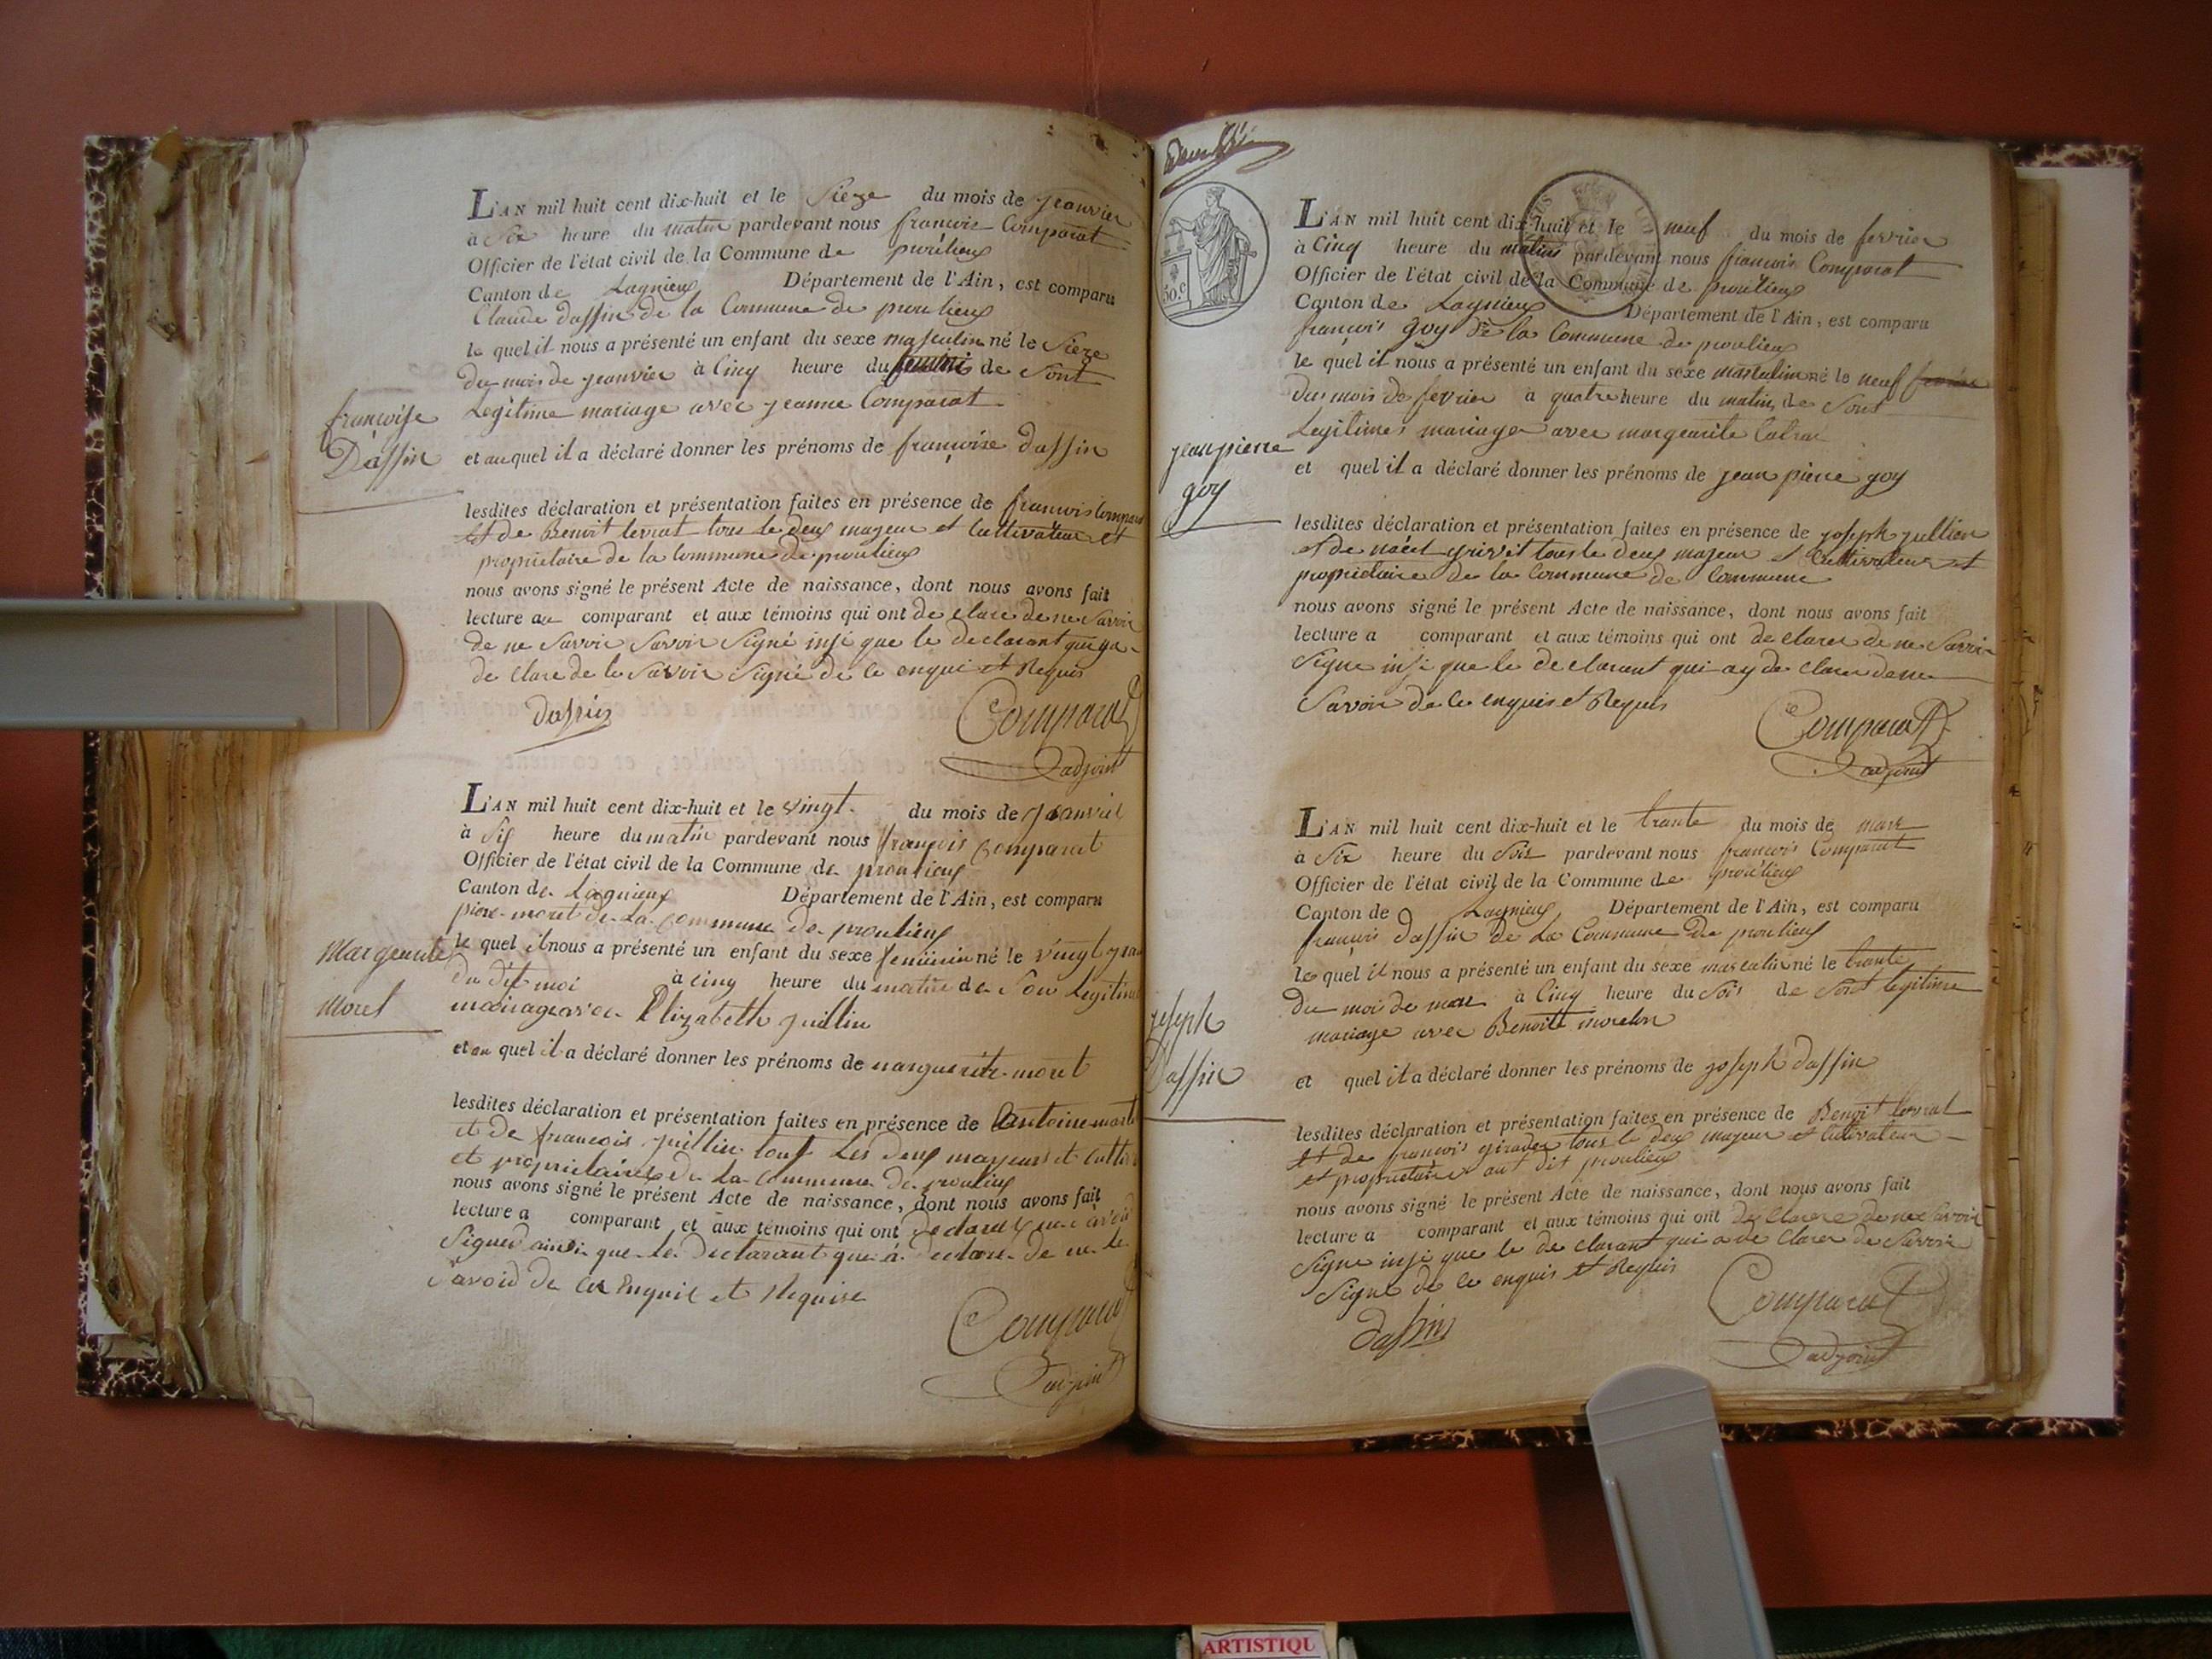 L'AN mil huit cent dix-huit et le sieze du mois de jeanvier
à six heure du matin pardevant nous francois Comparat
Officier de l'état civil de la Commune de proulieux
Canton de Lagnieux Département de l'Ain, est comparu
Claude dassin de la Commune de proulieux
le quel il nous a présenté un enfant du sexe masculin né le sieze
du mois de jeanvier à Cinq heure du de sont
Legitime mariage avec jeanne Comparat
françoise
Dassin
et au quel il a déclaré donner les prénoms de françoise dassin
lesdites déclaration et présentation faites en présence de francois
et de Benoit levrat tous le deux majeur et Cultivateur et
propriétaire de la Commune de proulieux
nous avons signé le présent Acte de naissance, dont nous avons fait
lecture au comparant et aux témoins qui ont de clare de ne Savoir
de ne Savoir Savoir Signé insi que le declarant qui
de Clare de le Savoir Signé de ce enquis et Requis
dassin
Comparat
adjoint
L'AN mil huit cent dix-huit et le vingt du mois de jeanvier
à six heure du matin pardevant nous françois Comparat
Officier de l'état civil de la Commune de proulieux
Canton de Lagnieux Département de l'Ain, est comparu
piere moret de La Commune de proulieux
le quel il nous a présenté un enfant du sexe feminin né le vingt
du dit moi à cinq heure du matin de Son Legitime
mariage avec Elizabeth juillin
Margeurite
Moret
et au quel il a déclaré donner les prénoms de marguerite moret
lesdites déclaration et présentation faites en présence de Antoine
et de francois juillin tout Les deux majeurs et
et propriétaires de La Commune de proulieux
nous avons signé le présent Acte de naissance, dont nous avons fait
lecture a comparant et aux témoins qui ont
Signer ainsi que Le Declarant que a declare de ne le
Savoid de ce Enquis et Requise
Comparat
adjoint
50.c
L'AN mil huit cent dix-huit et le neuf du mois de fevrier
à Cinq heure du matins pardevant nous francois Comparat
Officier de l'état civil de la Commune de proulieux
Canton de Lagnieux Département de l'Ain, est comparu
françois goy de la Commune de proulieux
le quel il nous a présenté un enfant du sexe masculin né le neuf
du mois de fevrier a quatre heure du matin de Sont
Legitimes mariage avec margearite
jean pierre
goy
et quel il a déclaré donner les prénoms de jean pierre goy
lesdites déclaration et présentation faites en présence de joseph jullien
et de grivet tous le deux majeur et Cultivateur et
propriétaire de la Commune de Commune
nous avons signé le présent Acte de naissance, dont nous avons fait
lecture a comparant et aux témoins qui ont de clarer de ne Savoir
Signe insi que le de clarant qui ay de clarer de ne
Savoir de ce enquis et Requis
Comparat
adjoint
L'AN mil huit cent dix-huit et le trante du mois de mars
à Six heure du Soir pardevant nous francois Comparat
Officier de l'état civil de la Commune de proulieux
Canton de Lagnieux Département de l'Ain, est comparu
françois dassin de La Commune de proulieux
le quel il nous a présenté un enfant du sexe masculin né le trante
du moi de mars à Cinq heure du Soir de Sont legitime
mariage avec Benoite morelon
joseph
Dassin
et quel il a déclaré donner les prénoms de joseph dassin
lesdites déclaration et présentation faites en présence de Benoit levrat
et de francois tous le deux majeur et Cultivateur
et propriétaire aut dit proulieux
nous avons signé le présent Acte de naissance, dont nous avons fait
lecture a comparant et aux témoins qui ont de Clarer de ne Savoir
Signe insi que le de clarant qui a de Clarer de Savoir
Signe de ce enquis et Requis
dassin
Comparat
adjoint
ARTISTIQU